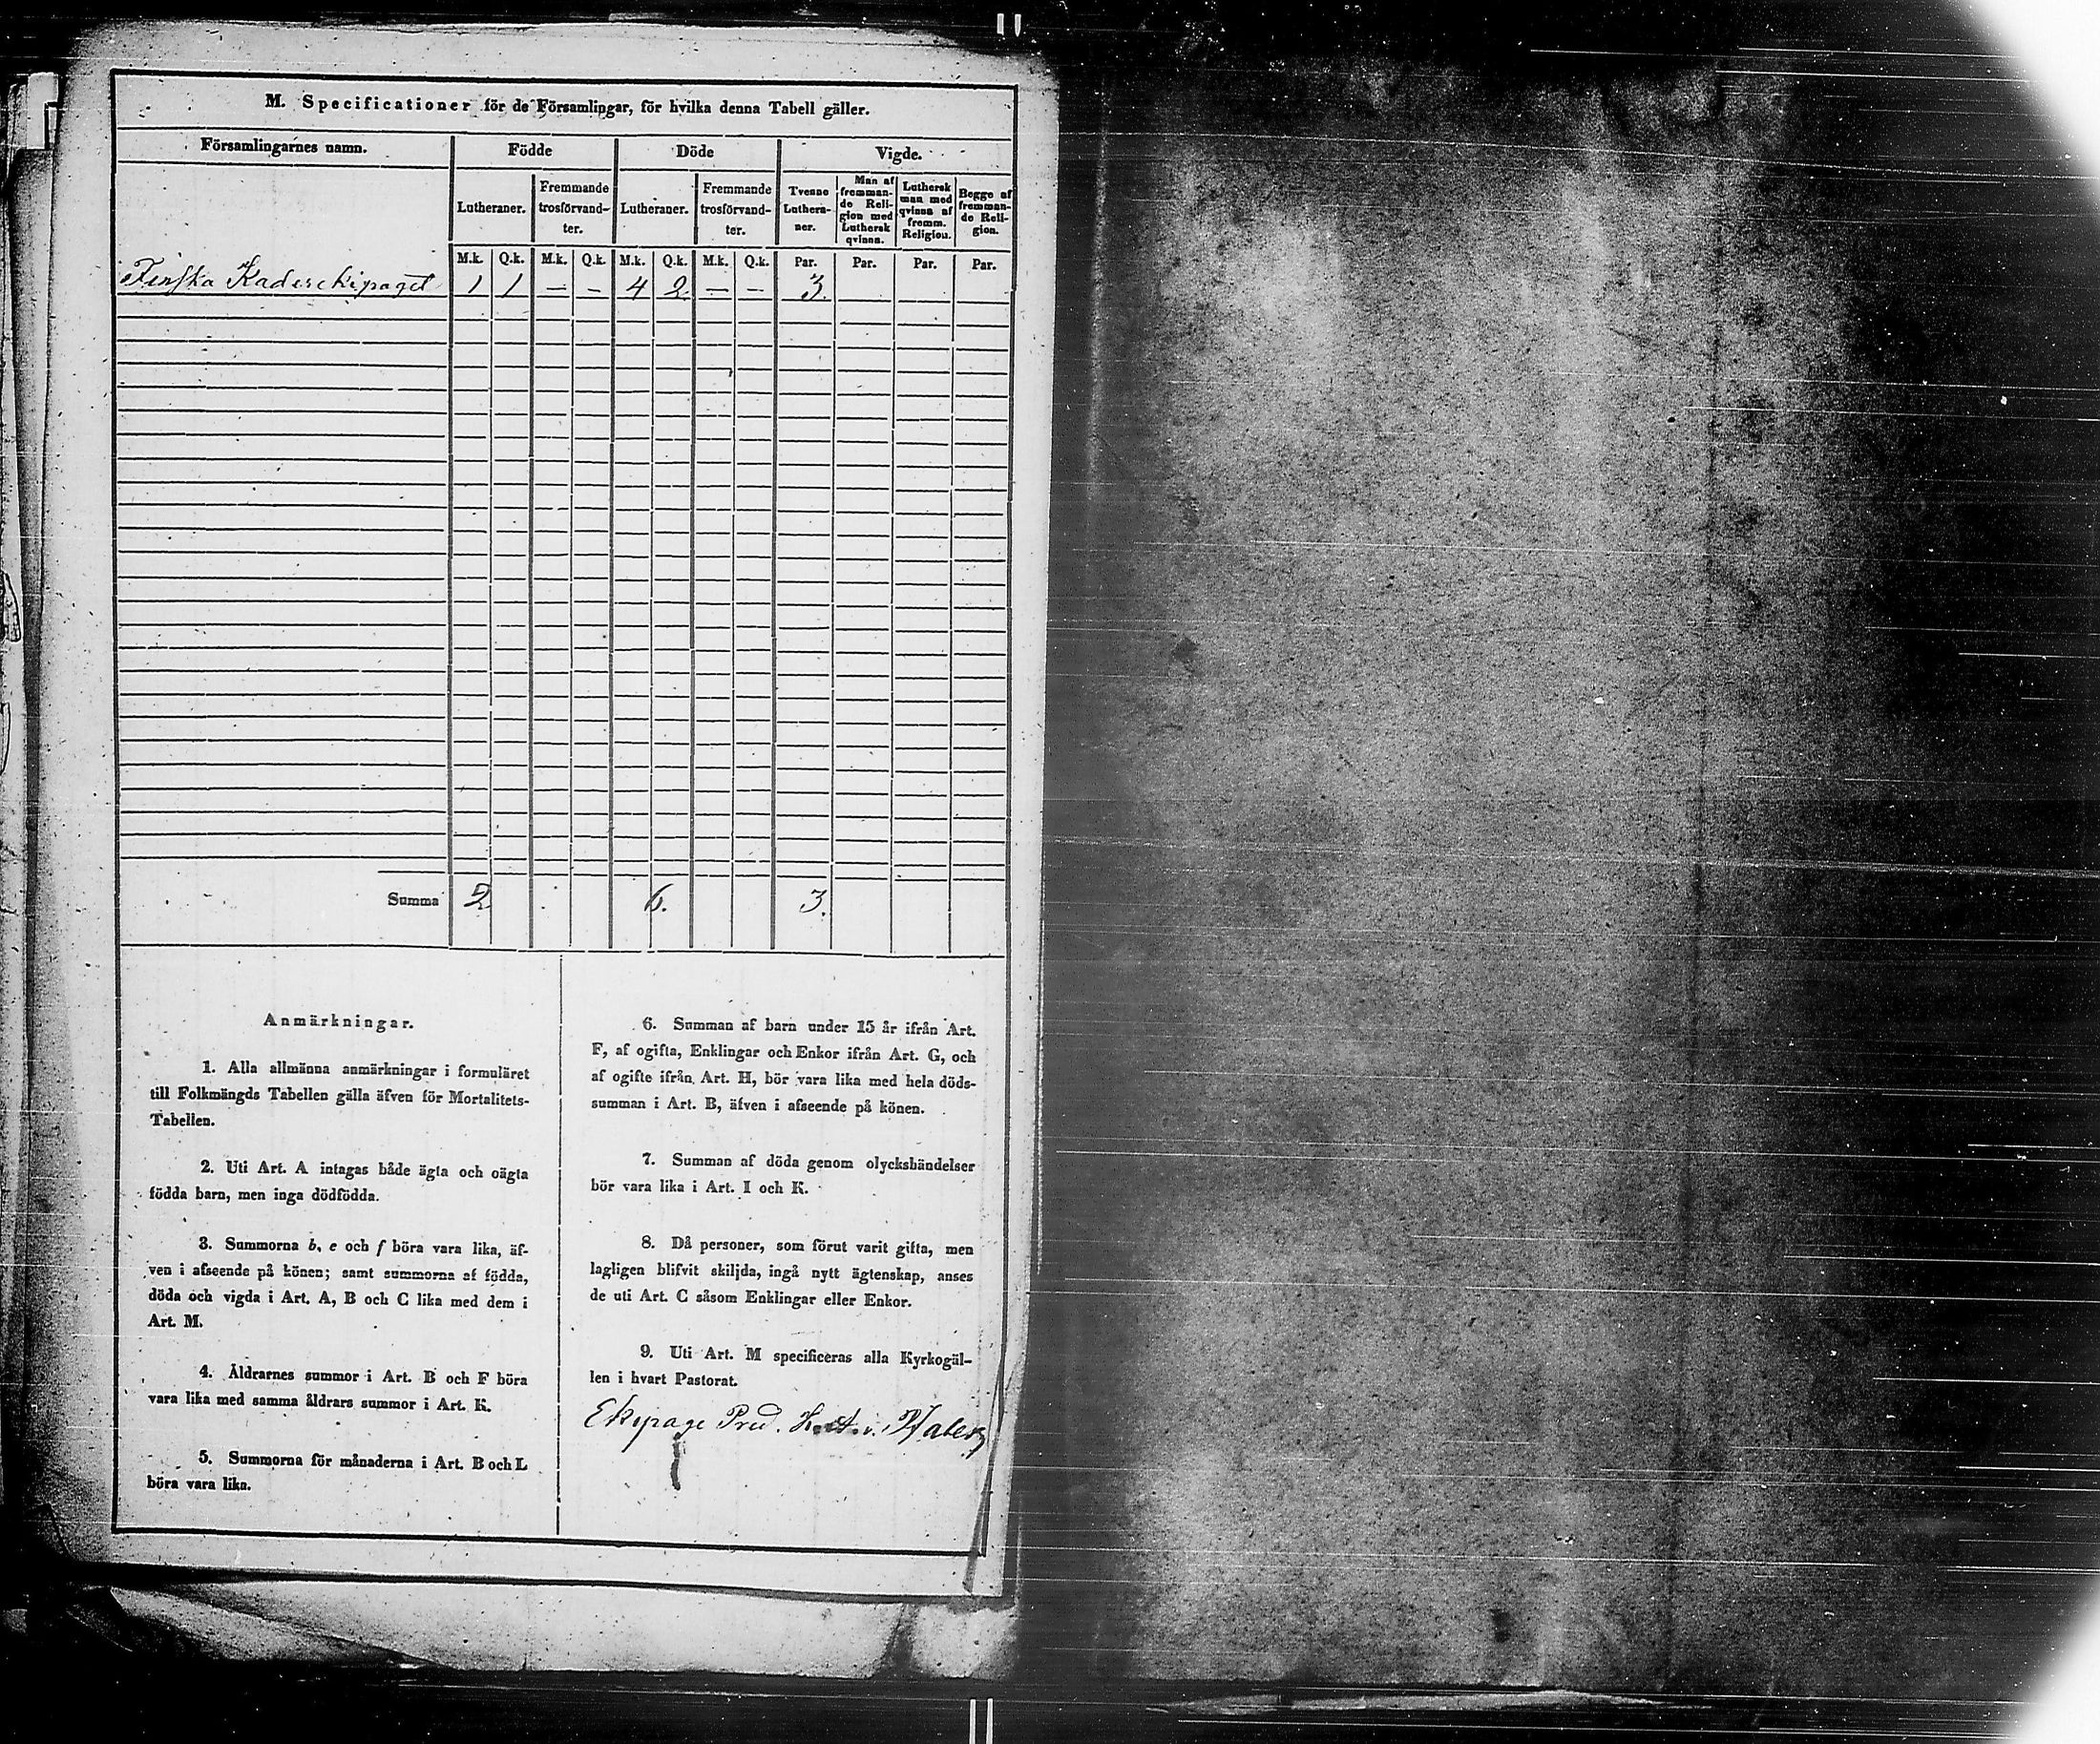 M. Specificationer för de Församlingar, för hvilka denna Tabell gäller.
Församlingarnes namn. Födde Döde Vigde.
Lutheraner. Fremmande trosförvand- ter. Lutheraner. Fremmande trosförvand- ter. Tvenne Luthera- ner. Man af fremman- de Reli- gion med Luthersk qvinna. Luthersk man med qvinna af fremm. Religion. Begge af fremman- de Reli- gion.
M.k. Q.k. M.k. Q.k. M.k. Q.k. M.k. Q.k. Par. Par. Par. Par.
Finska Kaderekipaget 1 1 — — 4 2 — — 3.
Summa 2 6. 3.
Anmärkningar.
1. Alla allmänna anmärkningar i formuläret
till Folkmängds Tabellen gälla äfven för Mortalitets-
Tabellen.
2. Uti Art. A intagas både ägta och oägta
födda barn, men inga dödfödda.
3. Summorna b, e och f böra vara lika, äf-
ven i afseende på könen; samt summorna af födda,
döda och vigda i Art. A, B och C lika med dem i
Art. M.
4. Åldrarnes summor i Art. B och F böra
vara lika med samma åldrars summor i Art. K.
5. Summorna för månaderna i Art. B och L
böra vara lika.
6. Summan af barn under 15 år ifrån Art.
F, af ogifta, Enklingar och Enkor ifrån Art. G, och
af ogifte ifrån Art. H, bör vara lika med hela döds-
summan i Art. B, äfven i afseende på könen.
7. Summan af döda genom olyckshändelser
bör vara lika i Art. I och K.
8. Då personer, som förut varit gifta, men
lagligen blifvit skiljda, ingå nytt ägtenskap, anses
de uti Art. C såsom Enklingar eller Enkor.
9. Uti Art. M specificeras alla Kyrkogäl-
len i hvart Pastorat.
Ekipage Pred.